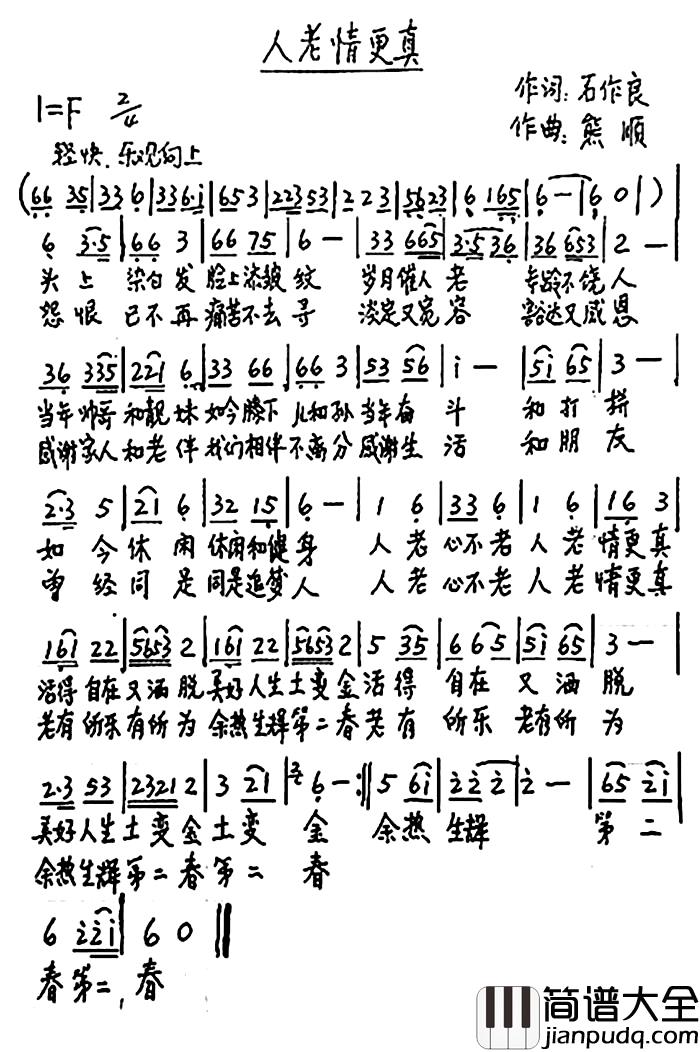 人老情更真
1=F 2/4
作词：石作良
作曲：熊顺
轻快、乐观向上
(66 35|33 6|336·i|653|22353|223|5623|6 165|6—|6 0|)
6 3·5|66 3|66 75|6 —|33 665|3·5 36|36 653|2 —|
头上 染白发 脸上添皱纹 岁月催人老 年龄不饶人
怨恨 已不再 痛苦不去寻 淡定又宽容 豁达又感恩
36 335|221 6|33 66|66 3|53 56|i —|5i 65|3 —|
当年帅哥和靓妹如今膝下儿和孙当年奋斗 和打拼
感谢家人和老伴我们相伴不离分感谢生活 和朋友
2·3 5|21 6|32 15|6 —|1 6|33 6|1 6|16 3|
如今休闲休闲和健身 人老心不老人老情更真
曾经同是同是追梦人 人老心不老人老情更真
161 22|5653 2|161 22|5653 2|5 35|6 65|5i 65|3 —|
活得自在又洒脱美好人生土变金活得 自在 又洒脱
老有所乐有所为余热生辉第二春老有 所乐 老有所为
2·3 53|2321 2|3 21|2/4 6 —:||5 6i|2 2 2|2 —|65 2i|
美好人生土变金土变金 余热生辉 第二
余热生辉第二春第二春
6 i2i|6 0||
春第二,春
简谱大全
jianpudq.com